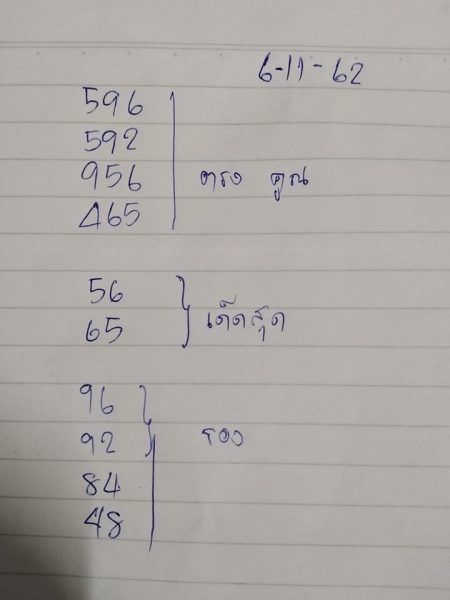 6-11-62
596
592
956 ตรง คูณ
465
56
65 เด็ดสุด
96
92 รอง
84
48